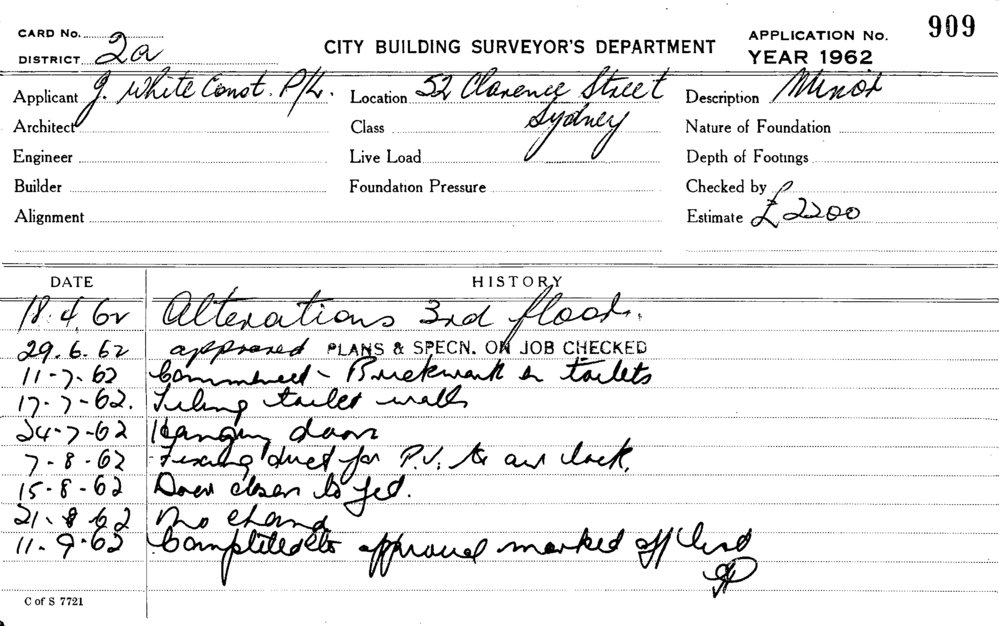 CARD No.
DISTRICT 2a
CITY BUILDING SURVEYOR'S DEPARTMENT
APPLICATION No. 909
YEAR 1962
Applicant J. White Const. P/L. Location 52 Clarence Street Description Minor
Architect Class Sydney Nature of Foundation
Engineer Live Load Depth of Footings
Builder Foundation Pressure Checked by
Alignment Estimate £2200
DATE HISTORY
18.4.62 Alterations 3rd floor.
29.6.62 approved PLANS & SPECN. ON JOB CHECKED
11-7-62 Commenced - Brickwork in toilets
17-7-62. Tiling toilet walls
24-7-62 Hanging doors
7-8-62 Fixing duct for P.V. to air lock.
15-8-62 Door closer to fed.
21.8.62 no change
11.9.62 Completed to approval marked off
C of S 7721